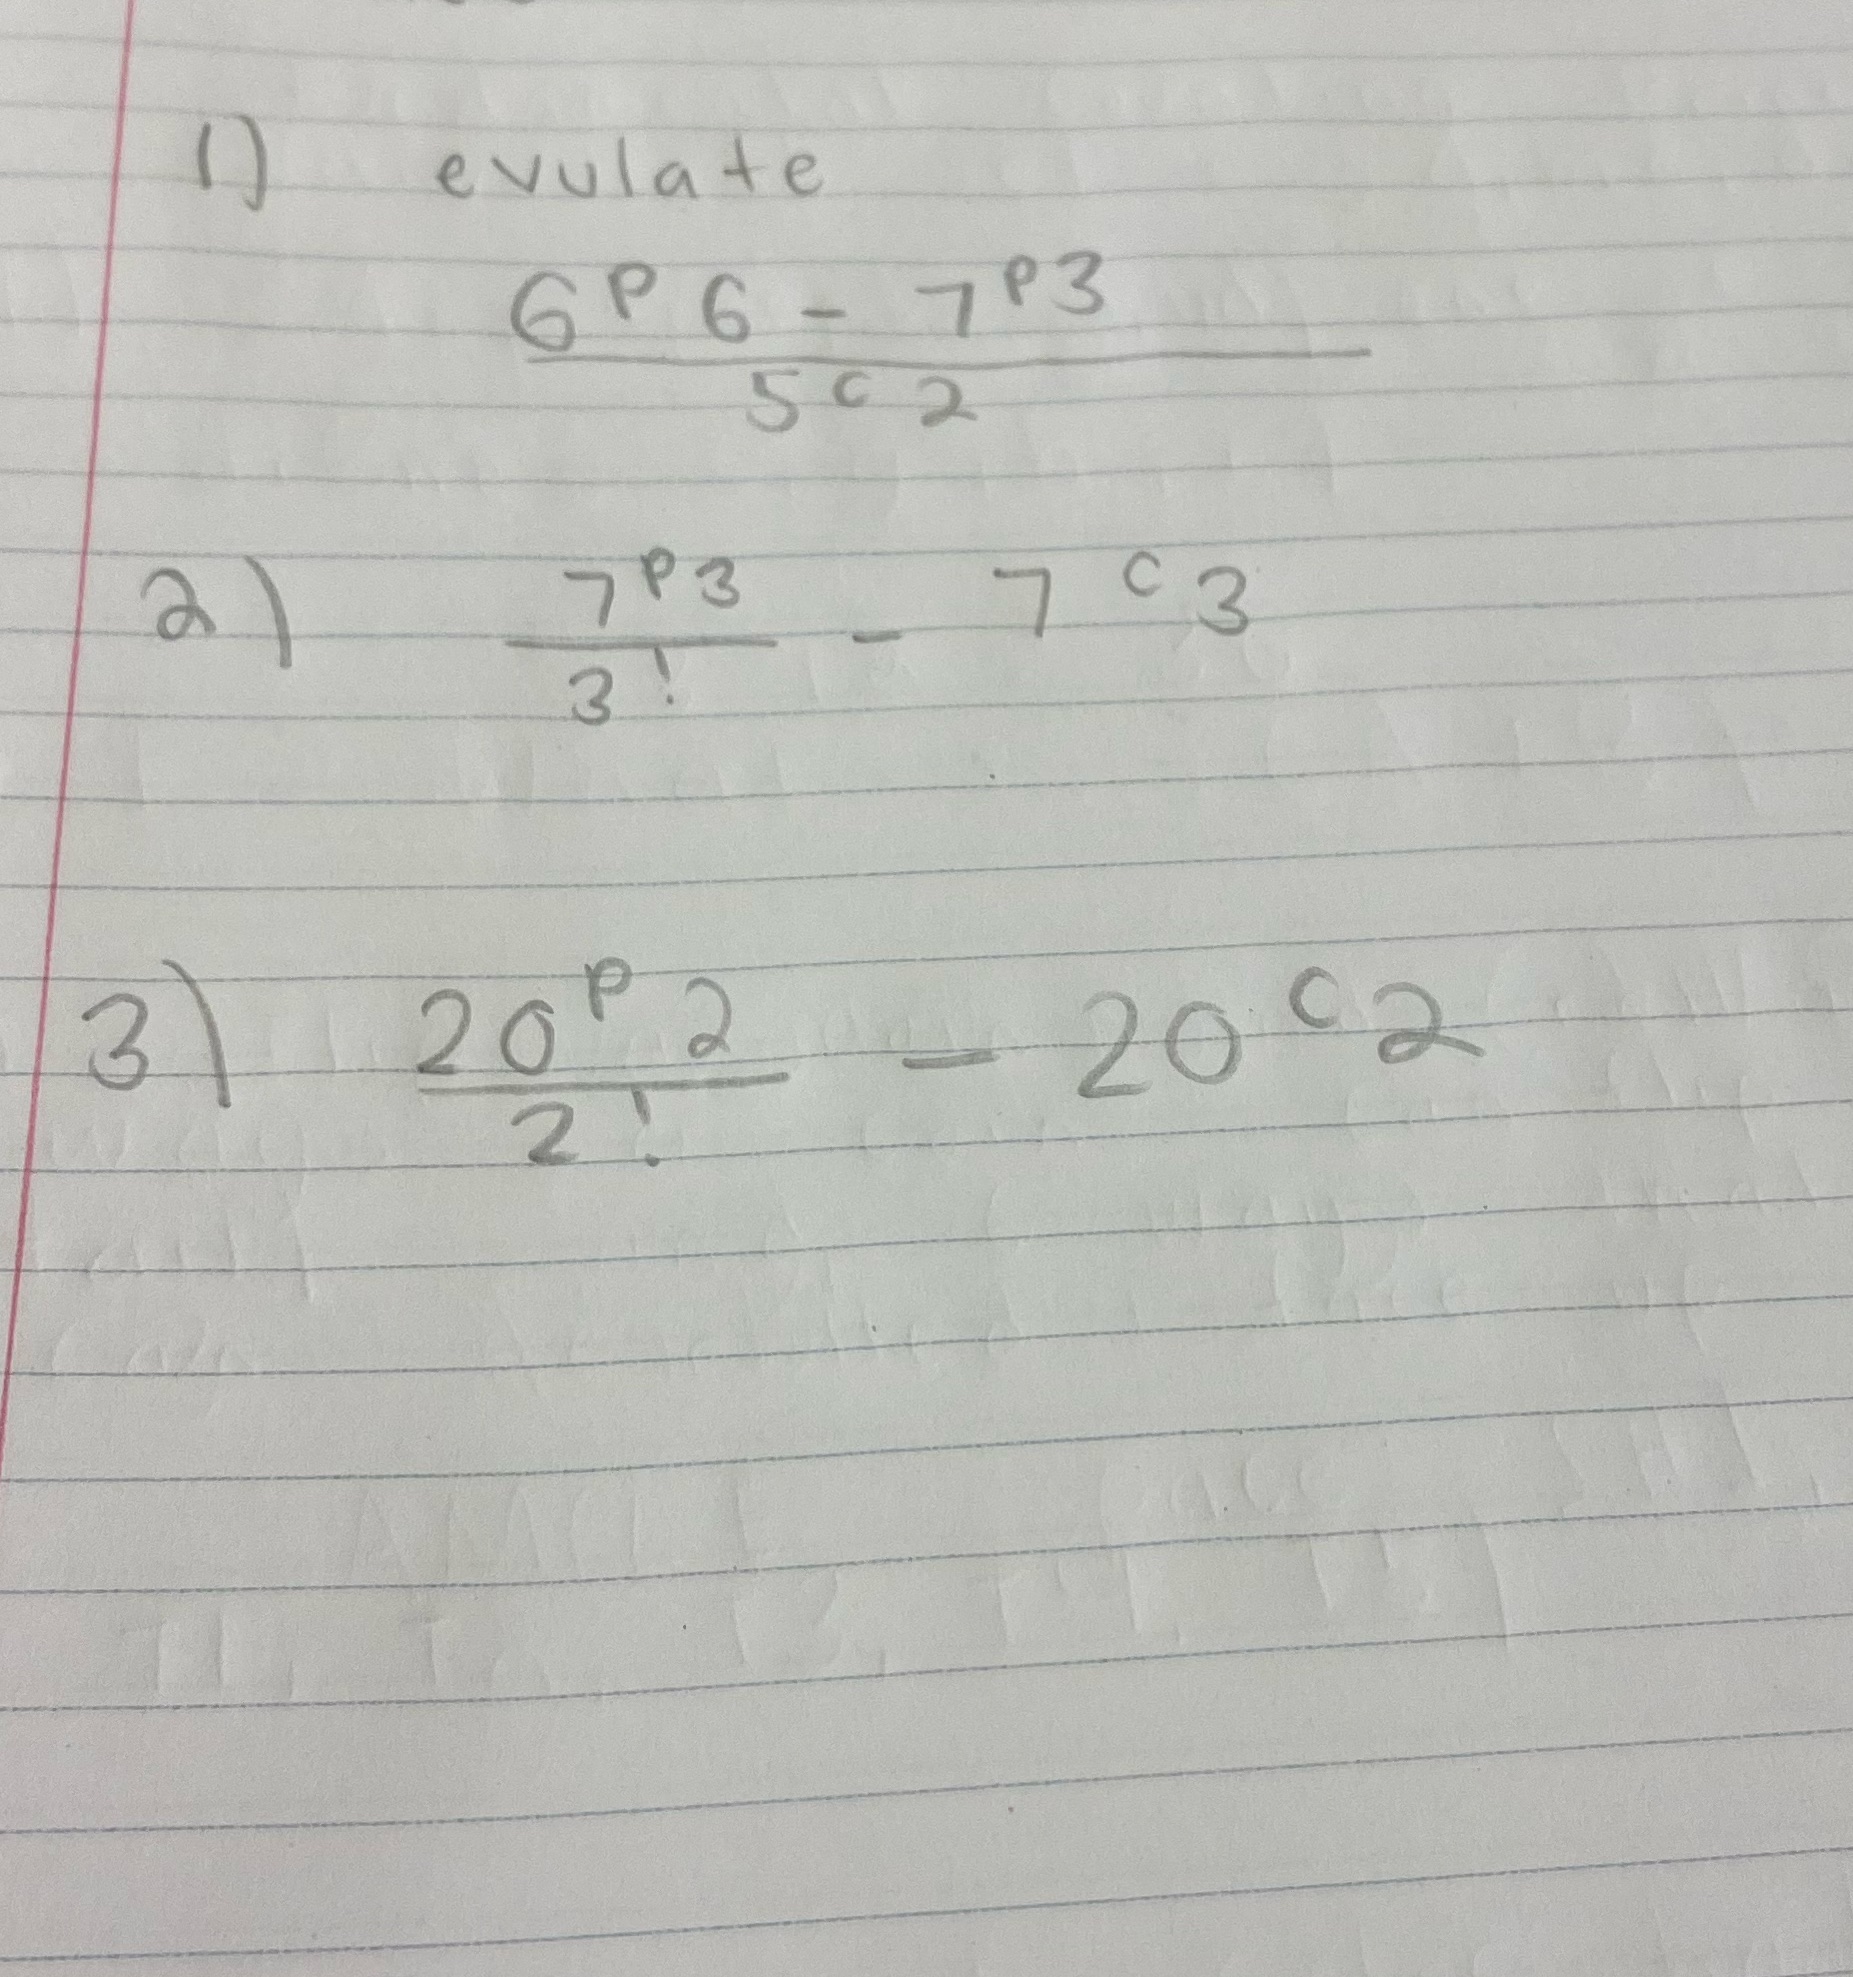 1) evulate
6 P 6 - 7 P 3
5 C 2
2) 7 P 3 - 7 C 3
3!
3) 20 P 2 - 20 C 2
2!